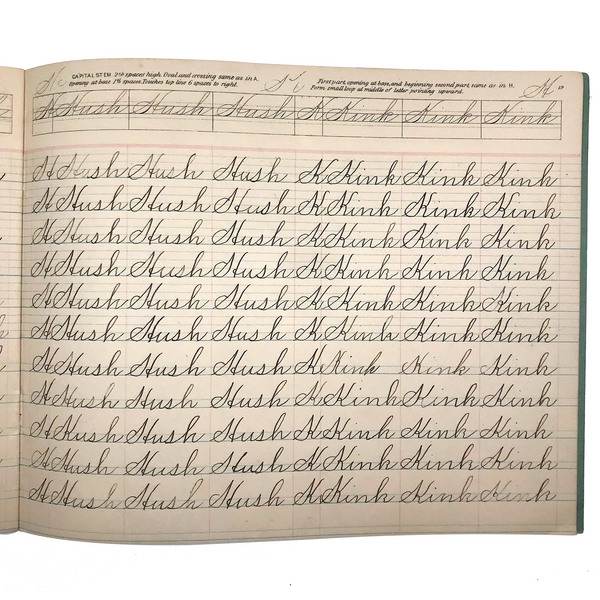 CAPITAL STEM 2½ spaces high. Oval and crossing same as in A.
opening at base 1¾ spaces. Touches top line 6 spaces to right.
First part, opening at base, and beginning second part, same as in H.
Form small loop at middle of letter pointing upward.
H Hush Hush Hush K Kink Kink Kink
H Hush Hush Hush K Kink Kink Kink
H Hush Hush Hush K Kink Kink Kink
H Hush Hush Hush K Kink Kink Kink
H Hush Hush Hush K Kink Kink Kink
H Hush Hush Hush K Kink Kink Kink
H Hush Hush Hush K Kink Kink Kink
H Hush Hush Hush K Kink Kink Kink
H Hush Hush Hush K Kink Kink Kink
H Hush Hush Hush K Kink Kink Kink
H Hush Hush Hush K Kink Kink Kink
H Hush Hush Hush K Kink Kink Kink